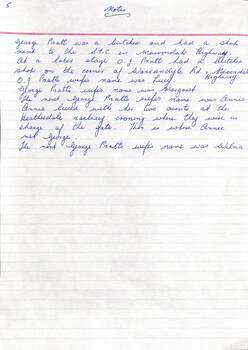 5
Notes
George Pratt was a butcher and had a shop
next to the S.P.C in Maroondah Highway.
At a later stage O.J Pratt had a butcher
shop on the corner of Warrandyte Rd & Maroondah
Highway
O.J Pratts wifes name was Lucy.
George Pratts wifes name was Margaret
The next George Pratts wifes name was Annie
Annie lived with her two aunts at the
Heatherdale railway crossing where they were in
charge of the gate. This is where Annie
met George.
The next George Pratts wifes name was Wilma